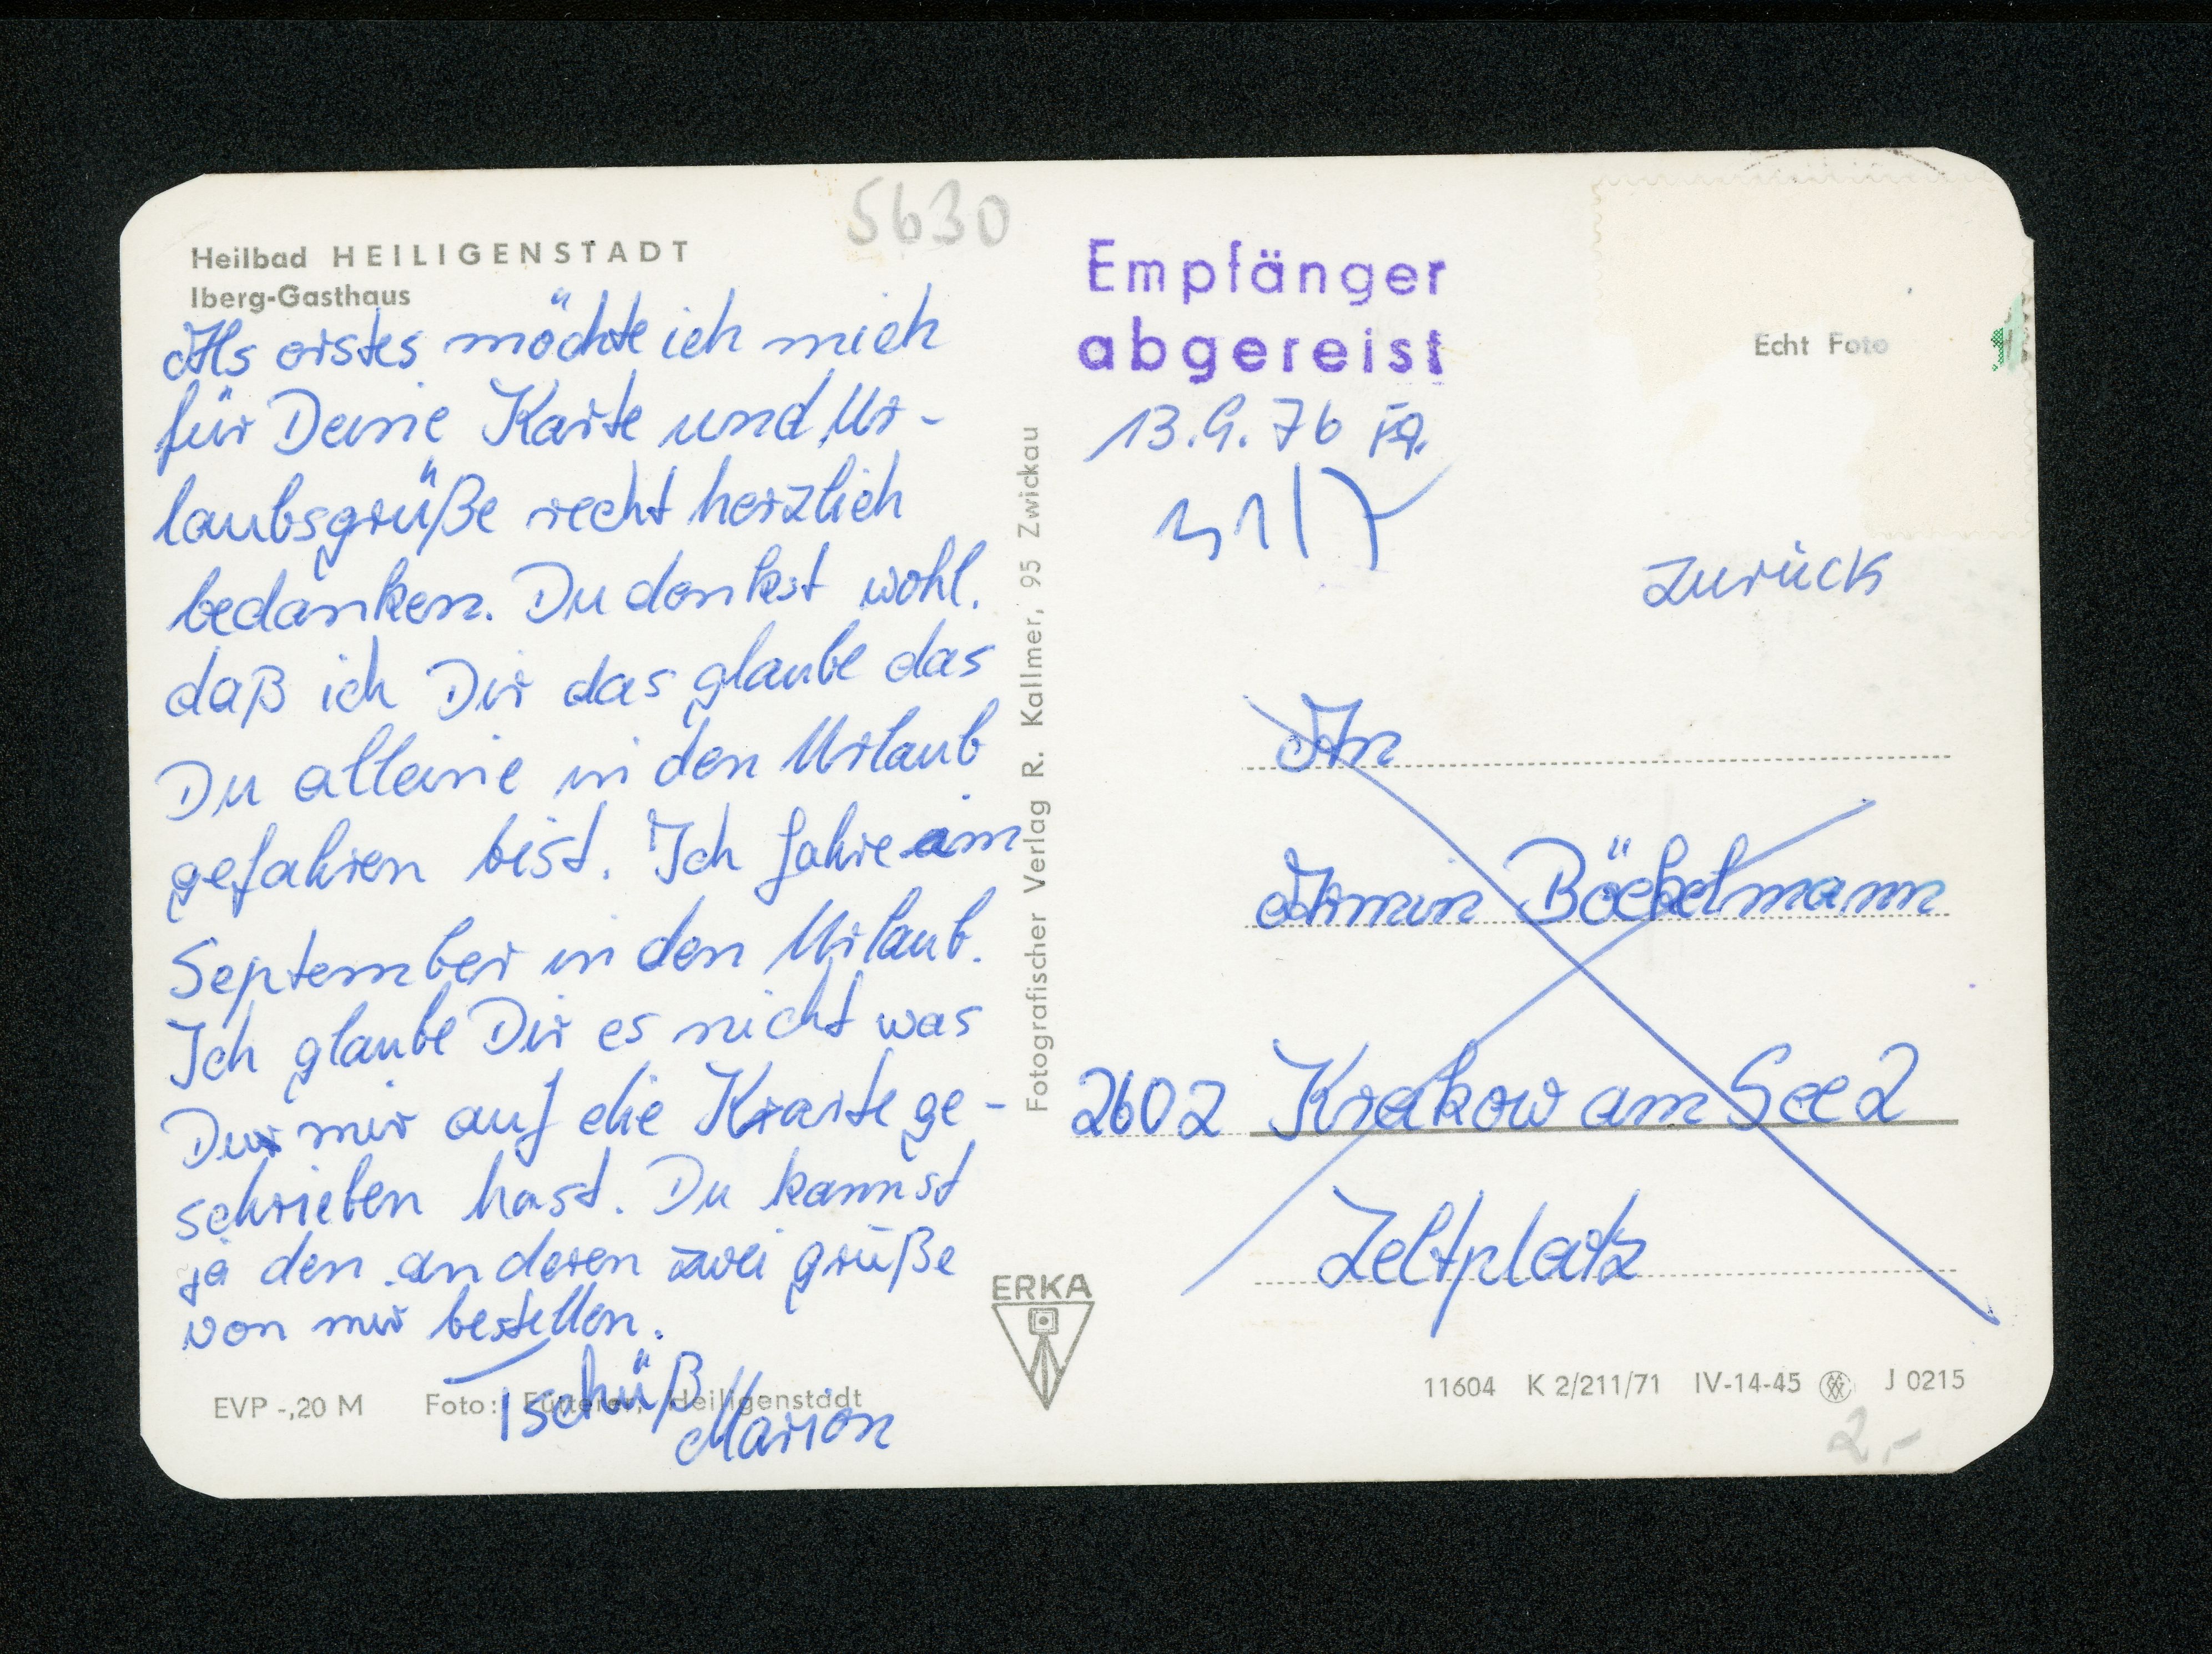 5630
Heilbad HEILIGENSTADT
Iberg-Gasthaus
Als erstes möchte ich mich
für Deine Karte und Ur-
laubsgrüße recht herzlich
bedanken. Du denkst wohl.
daß ich Dir das glaube das
Du alleine in den Urlaub
gefahren bist. Ich fahre im
September in den Urlaub.
Ich glaube Dir es nicht was
Du mir auf die Karte ge-
schrieben hast. Du kannst
ja den anderen zwei grüße
von mir bestellen.
Tschüß
Marion
EVP -,20 M Foto: Fütterer, Heiligenstadt
Fotografischer Verlag R. Kallmer, 95 Zwickau
ERKA
Empfänger
abgereist
13.9.76
Echt Foto
zurück
An
Armin Böckelmann
2602 Krakow am See 2
Zeltplatz
11604 K 2/211/71 IV-14-45 J 0215
2,-